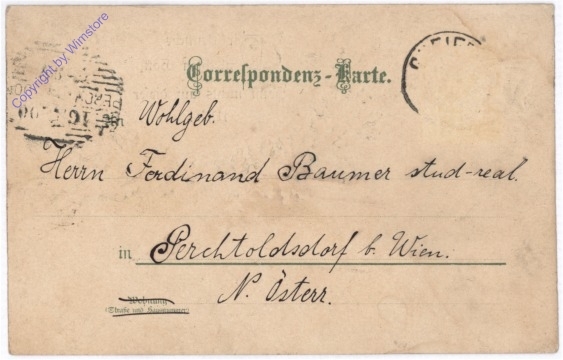 Copyright by Wimstore
Correspondenz-Karte.
Wohlgeb.
Herrn Ferdinand Baumer stud-real.
in Perchtoldsdorf b. Wien.
N. Österr.
Wohnung
(Straße und Hausnummer)